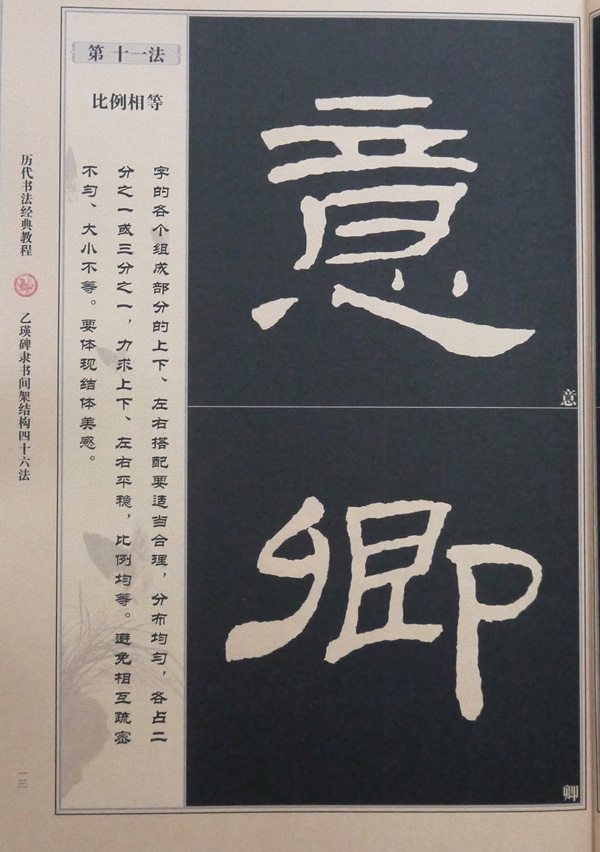 第十一法
比例相等
字的各个组成部分的上下、左右搭配要适当合理，分布均匀，各占二
分之一或三分之一，力求上下、左右平稳，比例均等。避免相互疏密
不匀、大小不等。要体现结体美感。
意
意
卿
卿
历代书法经典教程
乙瑛碑隶书间架结构四十六法
一三